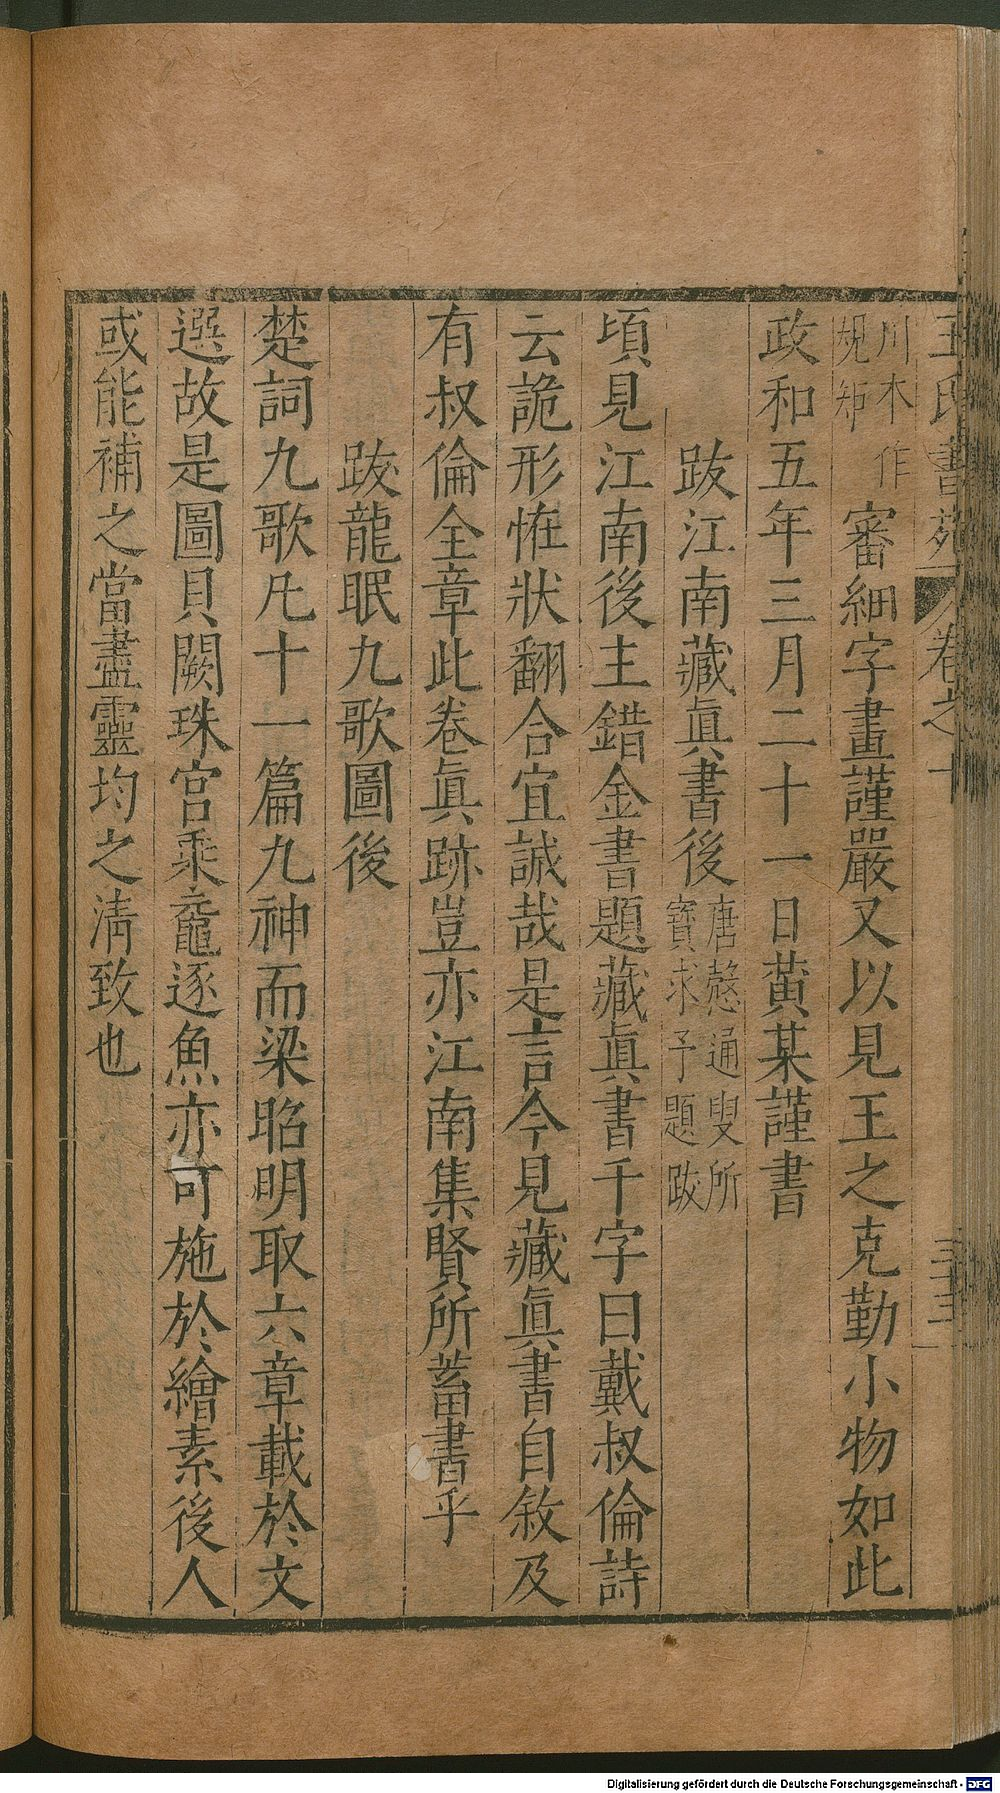 王氏書苑 卷之十 三十三
川本作規矩審細字畫謹嚴又以見王之克勤小物如此
政和五年三月二十一日黃某謹書
跋江南藏眞書後唐愨通叟所寶求予題跋
頃見江南後主錯金書題藏眞書千字曰戴叔倫詩
云詭形恠狀翻合宜誠哉是言今見藏眞書自敘及
有叔倫全章此卷眞跡豈亦江南集賢所蓄書乎
跋龍眠九歌圖後
楚詞九歌凡十一篇九神而梁昭明取六章載於文
選故是圖貝闕珠宮乘黿逐魚亦可施於繪素後人
或能補之當盡靈均之淸致也
Digitalisierung gefördert durch die Deutsche Forschungsgemeinschaft - DFG